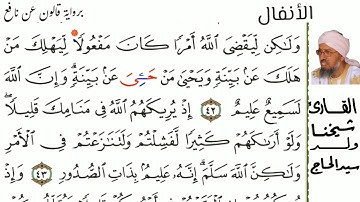 الأنفال
برواية قالون عن نافع
وَلَٰكِن لِّيَقْضِيَ اَ۬للَّهُ أَمْراٗ كَانَ مَفْعُولاٗ لِّيَهْلِكَ مَنْ
هَلَكَ عَنۢ بَيِّنَةٖ وَيَحْيَىٰ مَنْ حَيِيَ عَنۢ بَيِّنَةٖۖ وَإِنَّ اَ۬للَّهَ
لَسَمِيعٌ عَلِيمٌ ٤٢ إِذْ يُرِيكَهُمُ اُ۬للَّهُ فِي مَنَامِكَ قَلِيلاٗۖ
وَلَوْ أَرَىٰكَهُمْ كَثِيراٗ لَّفَشِلْتُمْ وَلَتَنَٰزَعْتُمْ فِي اِ۬لْأَمْرِ
وَلَٰكِنَّ اَ۬للَّهَ سَلَّمَۖ إِنَّهُۥ عَلِيمُۢ بِذَاتِ اِ۬لصُّدُورِ ٤٣ وَإِذْ
القارئ
شيخنا
ولد
سيد الحاج